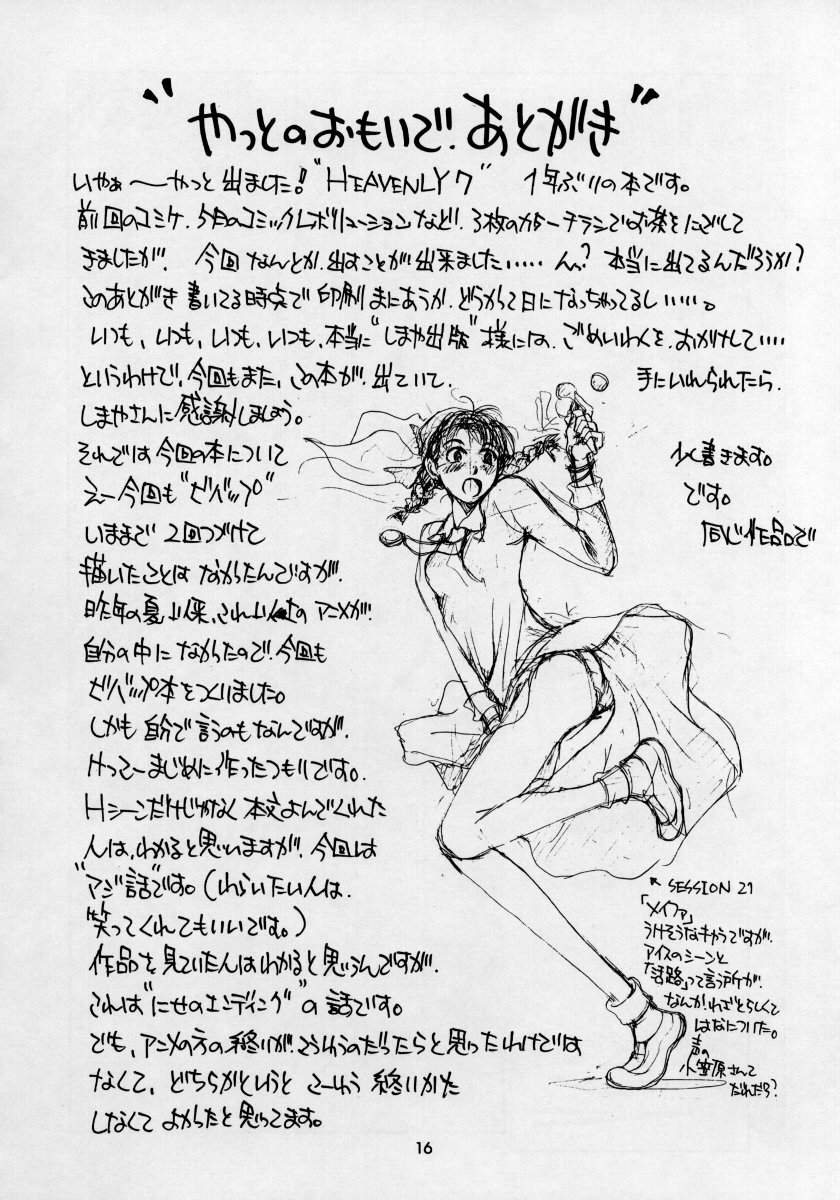 "やっとのおもいで!あとがき"
いやぁ〜やっと出ました!"HEAVENLY 7" 1年ぶりの本です。
前回のコミケ、5月のコミックレボリューションなど、3枚のカラーチラシでお茶をにごして
きましたが、今回なんとか、出すことが出来ました……ん?本当に出てるんだろうか?
このあとがき書いてる時点で印刷まにあうか、どうかって日になっちゃってるし……。
いつも、いつも、いつも、いつも、本当に"しまや出版"様には、ごめいわくを、おかけして……
というわけで、今回もまた、この本が、出ていて、手にいれられたら、
しまやさんに感謝しましょう。
それでは今回の本について少く書きます。
えー今回も"ビバップ"です。
いままで2回つづけて同じ作品で
描いたことはなかったんですが、
昨年の夏以来、これ以上のアニメが、
自分の中になかったので、今回も
ビバップ本をつくりました。
しかも自分で言うのもなんですが、
けっこーまじめに作ったつもりです。
Hシーンだけじゃなく本文よんでくれた
人は、わかると思いますが、今回は
"マジ話"です。(わらいたい人は、
笑ってくれてもいいです。)
作品を見ていた人はわかると思うんですが、
これは"にせのエンディング"の話です。
でも、アニメの方の終りが、こういうのだったらと思ったわけでは
なくて、どちらかというとこーゆう終りかた
しなくてよかったと思ってます。
↖ SESSION 21
「メイファ」
うけそうなキャラですが、
アイスのシーンと
「活路」って言う所が、
なんか、わざとらしくて
はなについた。
声の
小笠原さんて
だれだろ?
16